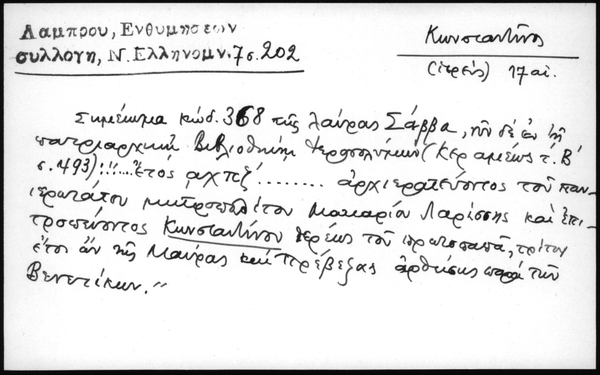 Λαμπρου, Ενθυμησεων
συλλογη, Ν. Ελληνομν. 7 σ. 202
Κωνσταντῖνος
(ἱερεύς) 17 αἰ.
Σημείωμα κώδ. 368 τῆς λαύρας Σάββα, νῦν δὲ ἐν τῇ
πατριαρχικῇ βιβλιοθήκῃ Ἱεροσολύμων (Κεραμέως τ. Β΄
σ. 493): "... Ἔτος αχπζ΄ ........ ἀρχιερατεύοντος τοῦ παν-
ιερωτάτου μητροπολίτου Μακαρίου Λαρίσσης καὶ ἐπι-
τροπεύοντος Κωνσταντίνου ἱερέως τοῦ πρωτοπαπᾶ, τρίτον
ἔτος ἀν τῆς Μαύρας καὶ Πρέβεζας ἀρθείσης παρὰ τῶν
Βενετίκων."